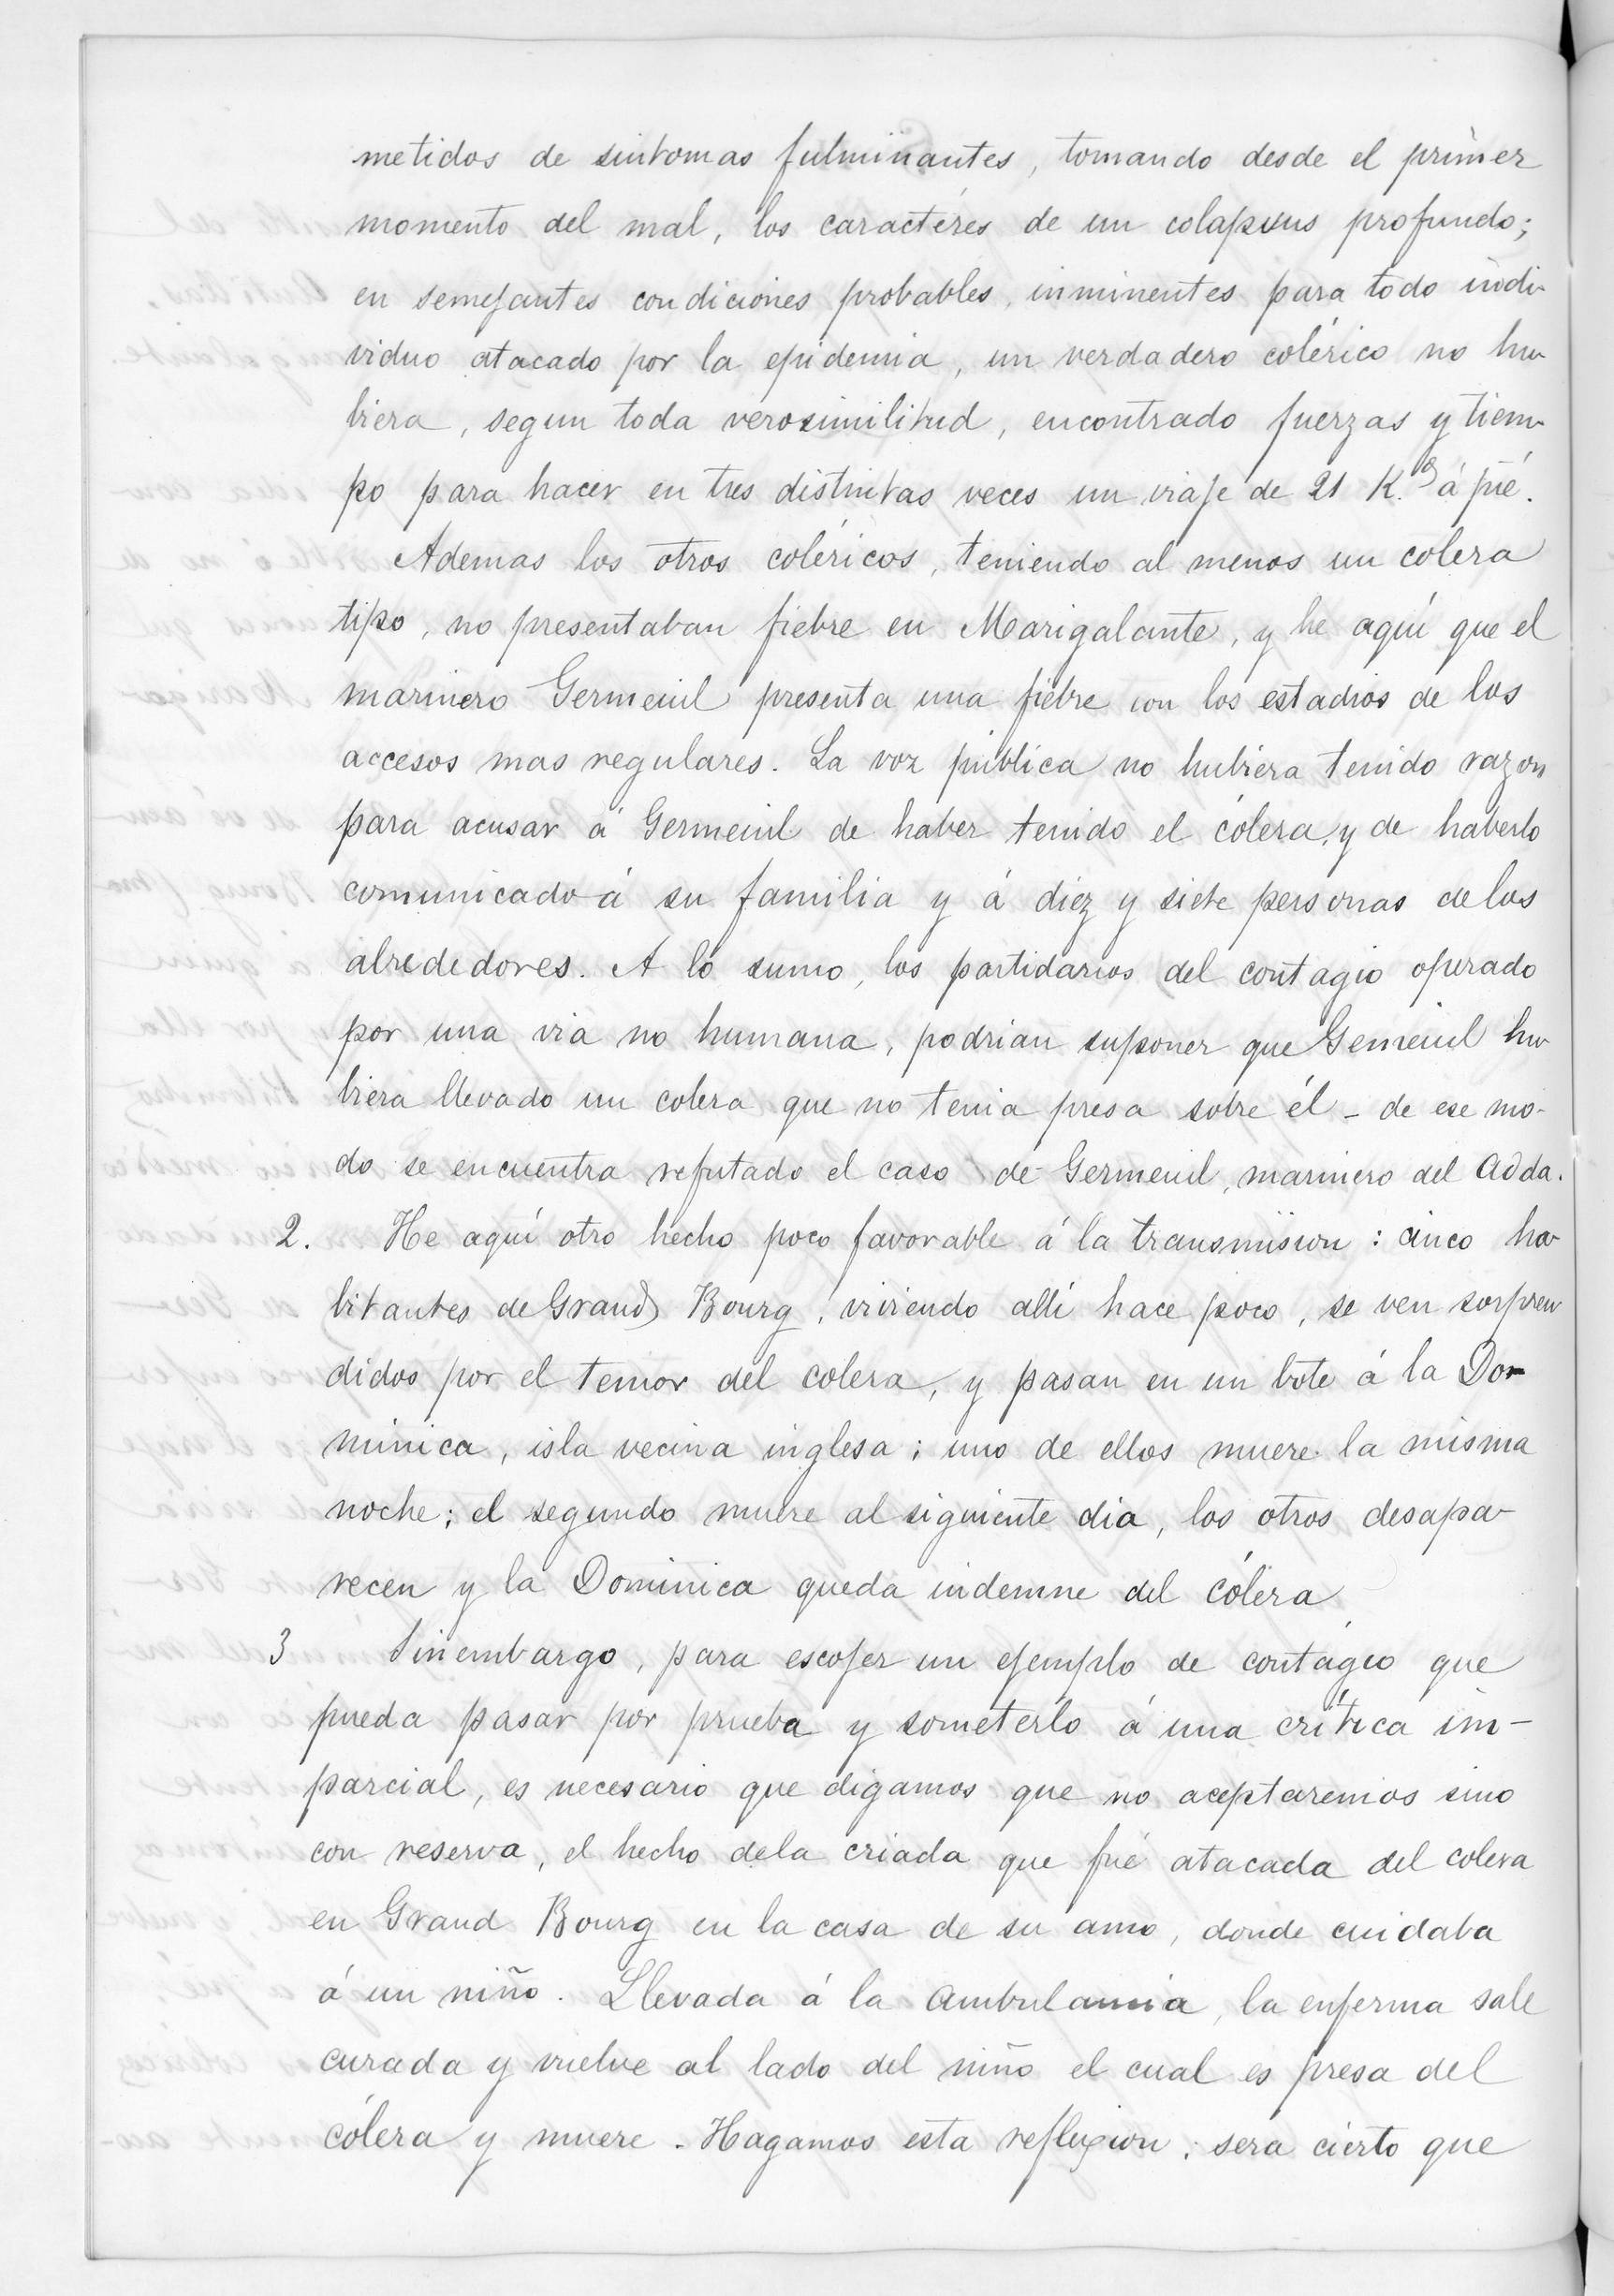 metidos de sintomas fulminantes, tomando desde el primer
momento del mal, los caractéres de un colapsus profundo;
en semejantes condiciones probables, inminentes para todo indi-
viduo atacado por la epidemia, un verdadero colérico no hu-
biera, segun toda verosimilitud, encontrado fuerzas y tiem-
po para hacer en tres distintas veces un viaje de 21 K.s á pié.
Ademas los otros coléricos, teniendo al menos un colera
tipo, no presentaban fiebre en Marigalante, y he aquí que el
marinero Germeuil presenta una fiebre con los estadios de los
accesos mas regulares. La voz pública no hubiera tenido razon
para acusar á Germeuil de haber tenido el cólera, y de haberlo
comunicado á su familia y á diez y siete personas de los
alrededores. A lo sumo, los partidarios del contagio operado
por una via no humana, podrian suponer que Gemeuil hu-
biera llevado un colera que no tenia presa sobre él - de ese mo-
do se encuentra refutado el caso de Germeuil, marinero del Adda.
2. He aquí otro hecho poco favorable á la transmision: cinco ha-
bitantes de Grand Bourg, viviendo allí hace poco, se ven sorpren
didos por el temor del colera, y pasan en un bote á la Do-
minica, isla vecina inglesa; uno de ellos muere la misma
noche; el segundo muere al siguiente dia, los otros desapa-
recen y la Dominica queda indemne del cólera
3 Sinembargo, para escojer un ejemplo de contágio que
pueda pasar por prueba y someterlo á una crítica im-
parcial, es necesario que digamos que no aceptaremos sino
con reserva, el hecho dela criada que fué atacada del colera
en Grand Bourg en la casa de su amo, donde cuidaba
á un niño. Llevada á la ambulancia, la enferma sale
curada y vuelve al lado del niño el cual es presa del
cólera y muere. Hagamos esta reflexion; sera cierto que